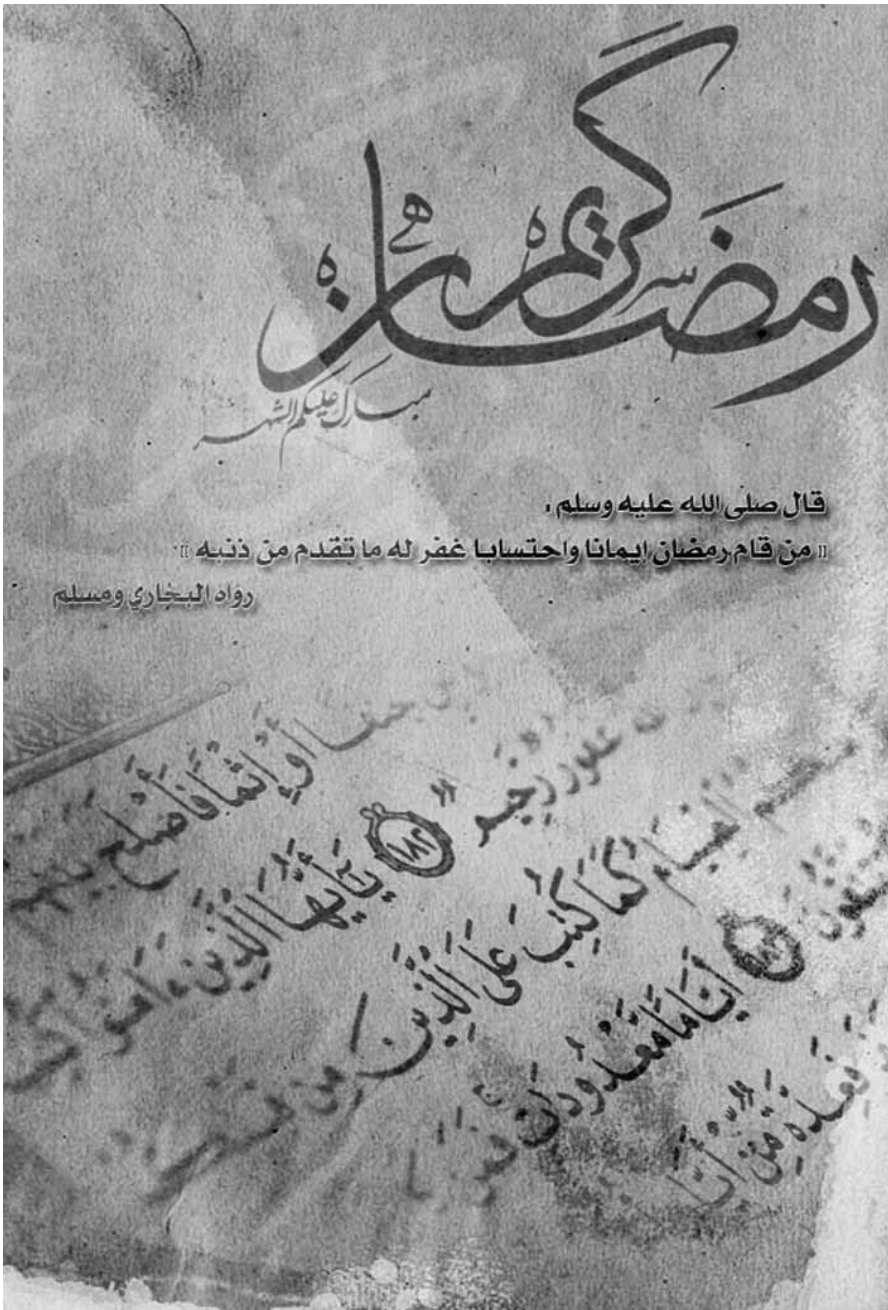 رمضان كريم
مبارك عليكم الشهر
قال صلى الله عليه وسلم :
(( من قام رمضان إيمانا واحتسابا غفر له ما تقدم من ذنبه )).
رواه البخاري ومسلم
جَنَفًا أَوْ إِثْمًا فَأَصْلَحَ بَيْنَهُمْ
غَفُورٌ رَّحِيمٌ ١٨٢ يَٰٓأَيُّهَا ٱلَّذِينَ ءَامَنُوا۟ كُتِبَ
ٱلصِّيَامُ كَمَا كُتِبَ عَلَى ٱلَّذِينَ مِن
تَتَّقُونَ ١٨٣ أَيَّامًا مَّعْدُودَٰتٍ فَمَن
فَعِدَّةٌ مِّنْ أَيَّا